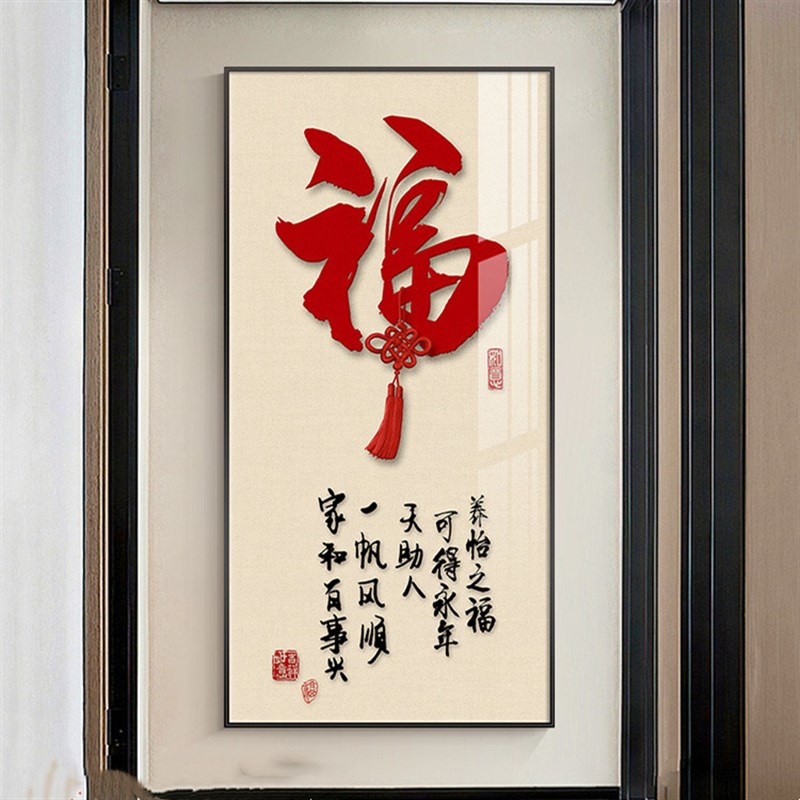 福
养怡之福
可得永年
天助人
一帆风顺
家和百事兴